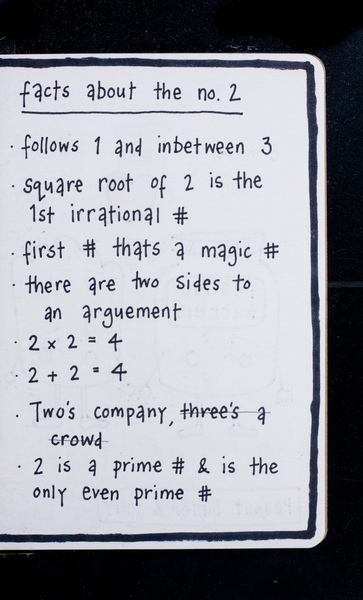 facts about the no. 2
· follows 1 and inbetween 3
· square root of 2 is the
1st irrational #
· first # thats a magic #
· there are two sides to
an arguement
· 2 x 2 = 4
· 2 + 2 = 4
· Two's company, three's a
crowd
· 2 is a prime # & is the
only even prime #